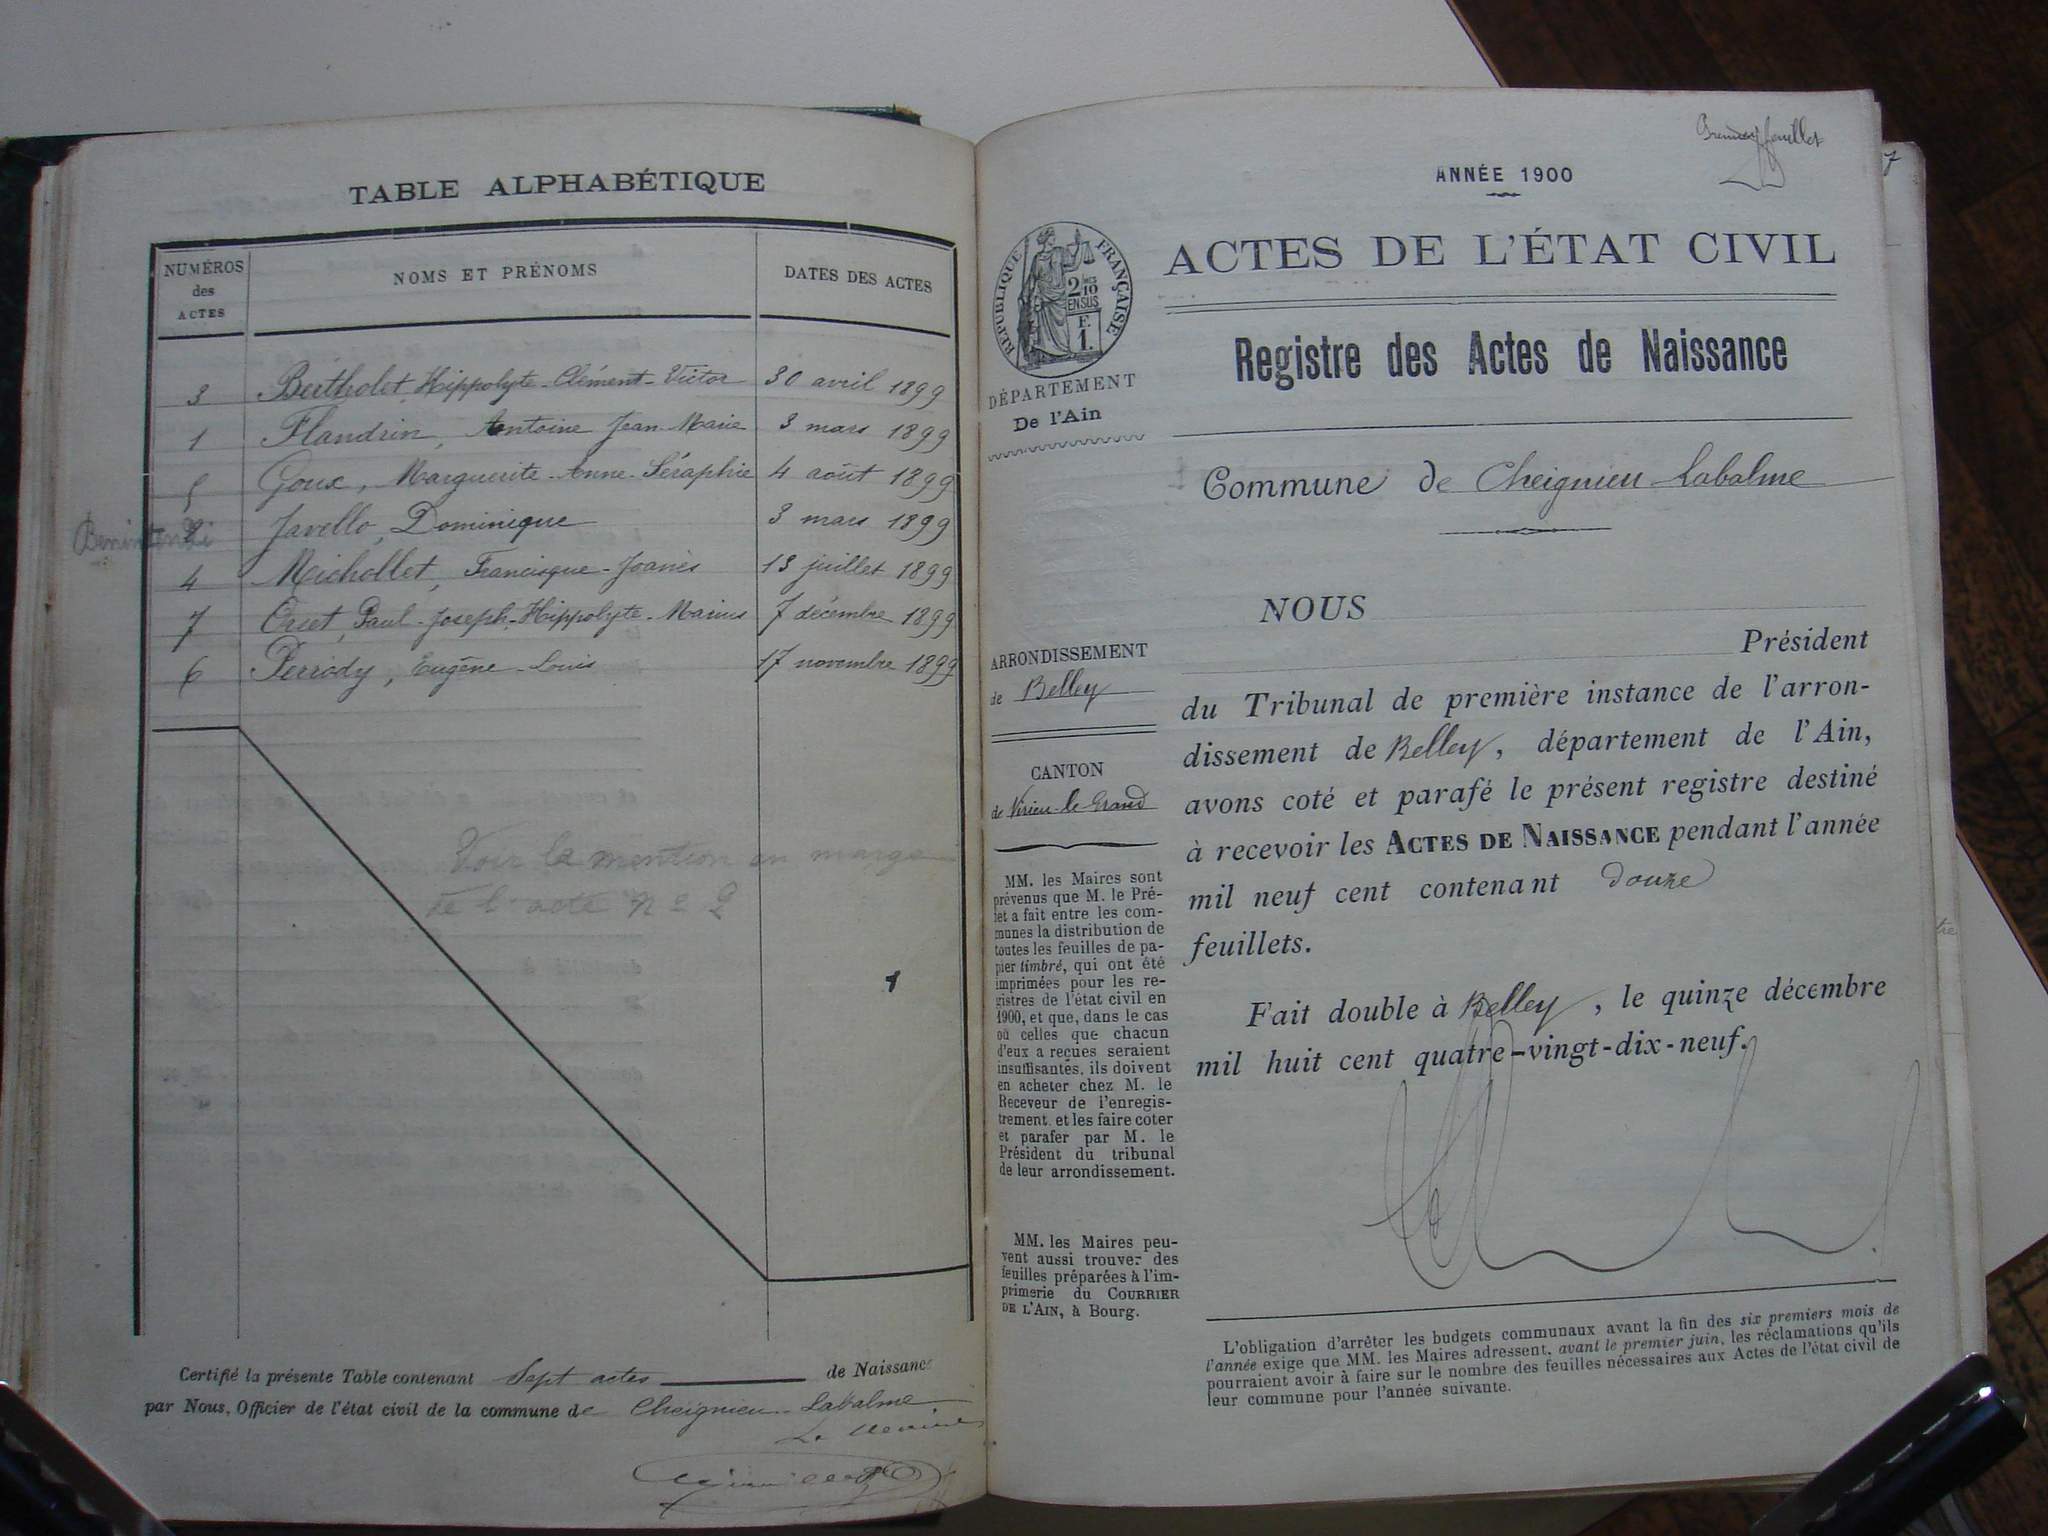 TABLE ALPHABÉTIQUE
NUMÉROS des ACTES
NOMS ET PRÉNOMS
DATES DES ACTES
3 Bertholet, Hippolyte-Clément-Victor 30 avril 1899
1 Flandrin, Antoine Jean-Marie 3 mars 1899
5 Goux, Marguerite-Anne-Séraphie 4 août 1899
Benintendi
2 Javello, Dominique 3 mars 1899
4 Michollet, Francisque-Joanès 13 juillet 1899
7 Orset, Paul-Joseph-Hippolyte-Marius 7 décembre 1899
6 Perrody, Eugène-Louis 17 novembre 1899
Voir la mention en marge
de l'acte n° 2
Certifié la présente Table contenant Sept actes de Naissance
par Nous, Officier de l'état civil de la commune de Cheignieu-Labalme
Le Maire
Premier feuillet
7
ANNÉE 1900
ACTES DE L'ÉTAT CIVIL
RÉPUBLIQUE FRANÇAISE
2/10 EN SUS
F. 1.
DÉPARTEMENT
De l'Ain
Registre des Actes de Naissance
Commune de Cheignieu-Labalme
ARRONDISSEMENT
de Belley
CANTON
de Virieu-le-Grand
MM. les Maires sont
prévenus que M. le Pré-
fet a fait entre les com-
munes la distribution de
toutes les feuilles de pa-
pier timbré, qui ont été
imprimées pour les re-
gistres de l'état civil en
1900, et que, dans le cas
où celles que chacun
d'eux a reçues seraient
insuffisantes, ils doivent
en acheter chez M. le
Receveur de l'enregis-
trement et les faire coter
et parafer par M. le
Président du tribunal
de leur arrondissement.
MM. les Maires peu-
vent aussi trouver des
feuilles préparées à l'im-
primerie du COURRIER
DE L'AIN, à Bourg.
NOUS
Président
du Tribunal de première instance de l'arron-
dissement de Belley, département de l'Ain,
avons coté et parafé le présent registre destiné
à recevoir les ACTES DE NAISSANCE pendant l'année
mil neuf cent contenant douze
feuillets.
Fait double à Belley, le quinze décembre
mil huit cent quatre-vingt-dix-neuf.
L'obligation d'arrêter les budgets communaux avant la fin des six premiers mois de
l'année exige que MM. les Maires adressent, avant le premier juin, les réclamations qu'ils
pourraient avoir à faire sur le nombre des feuilles nécessaires aux Actes de l'état civil de
leur commune pour l'année suivante.